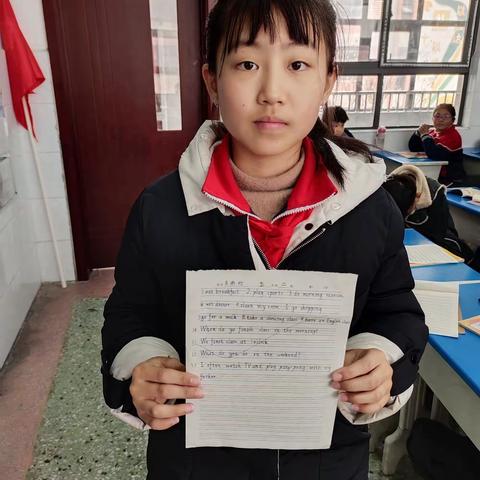 1. eat breakfast 2. play sports 3. do morning exercises
4. eat dinner 5. clean my room 6. go shopping
go for a walk 8. take a dancing class 9. have an English class
When do you finish class in the morning?
We finish class at 12 o'clock
What do you do on the weekend?
I often watch TV and play ping-pong with my
father.